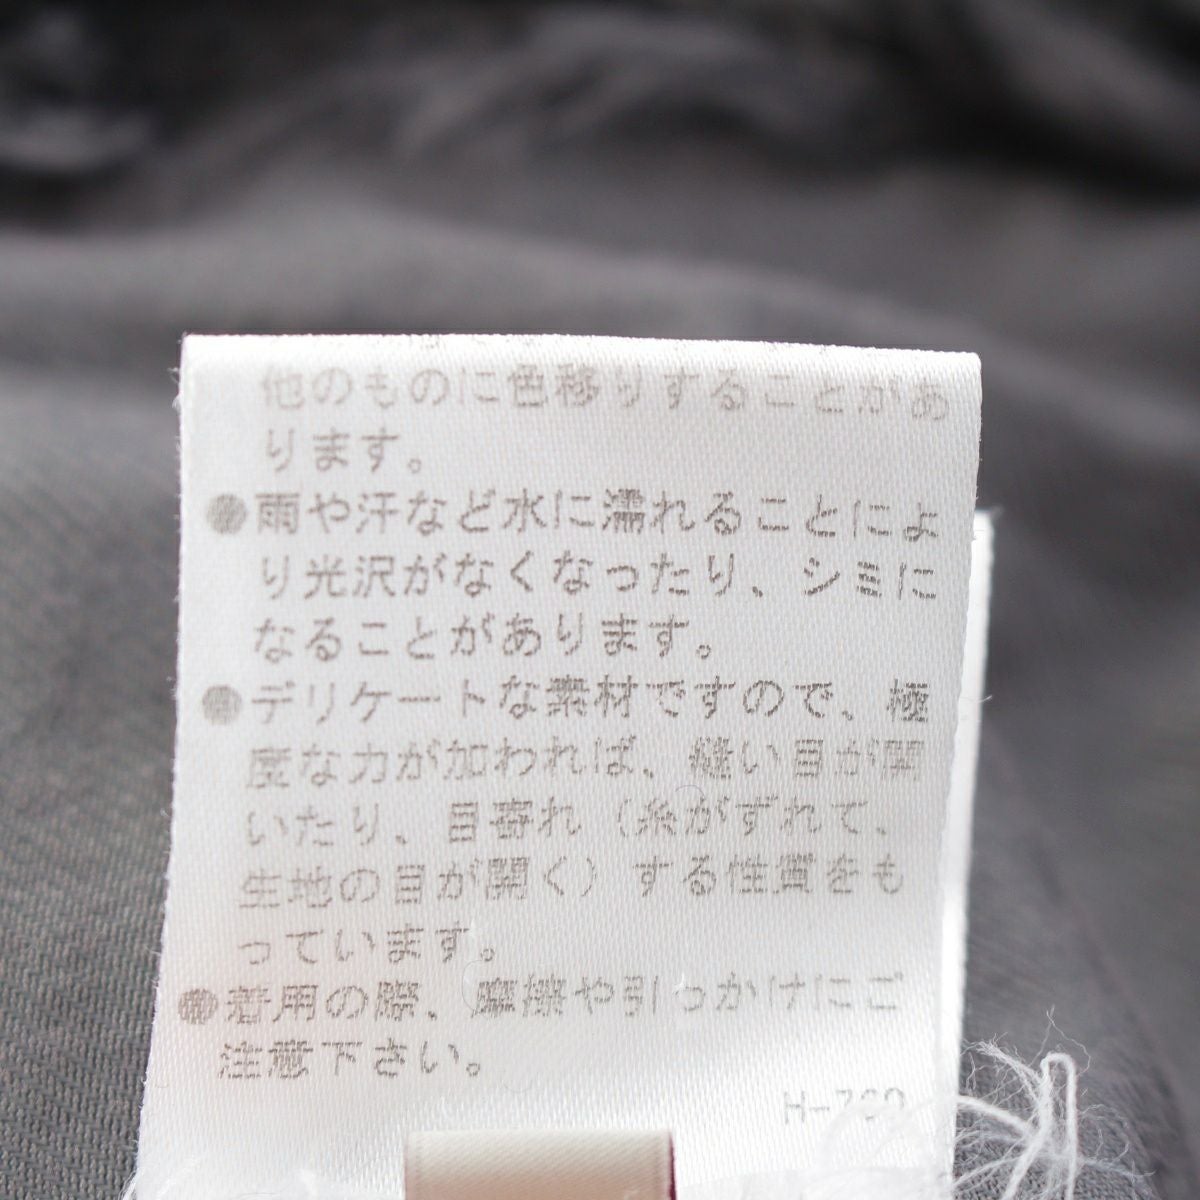 他のものに色移りすることがあ
ります。
●雨や汗など水に濡れることによ
り光沢がなくなったり、シミに
なることがあります。
●デリケートな素材ですので、極
度な力が加われば、縫い目が開
いたり、目寄れ（糸がずれて、
生地の目が開く）する性質をも
っています。
●着用の際、摩擦や引っかけにご
注意下さい。